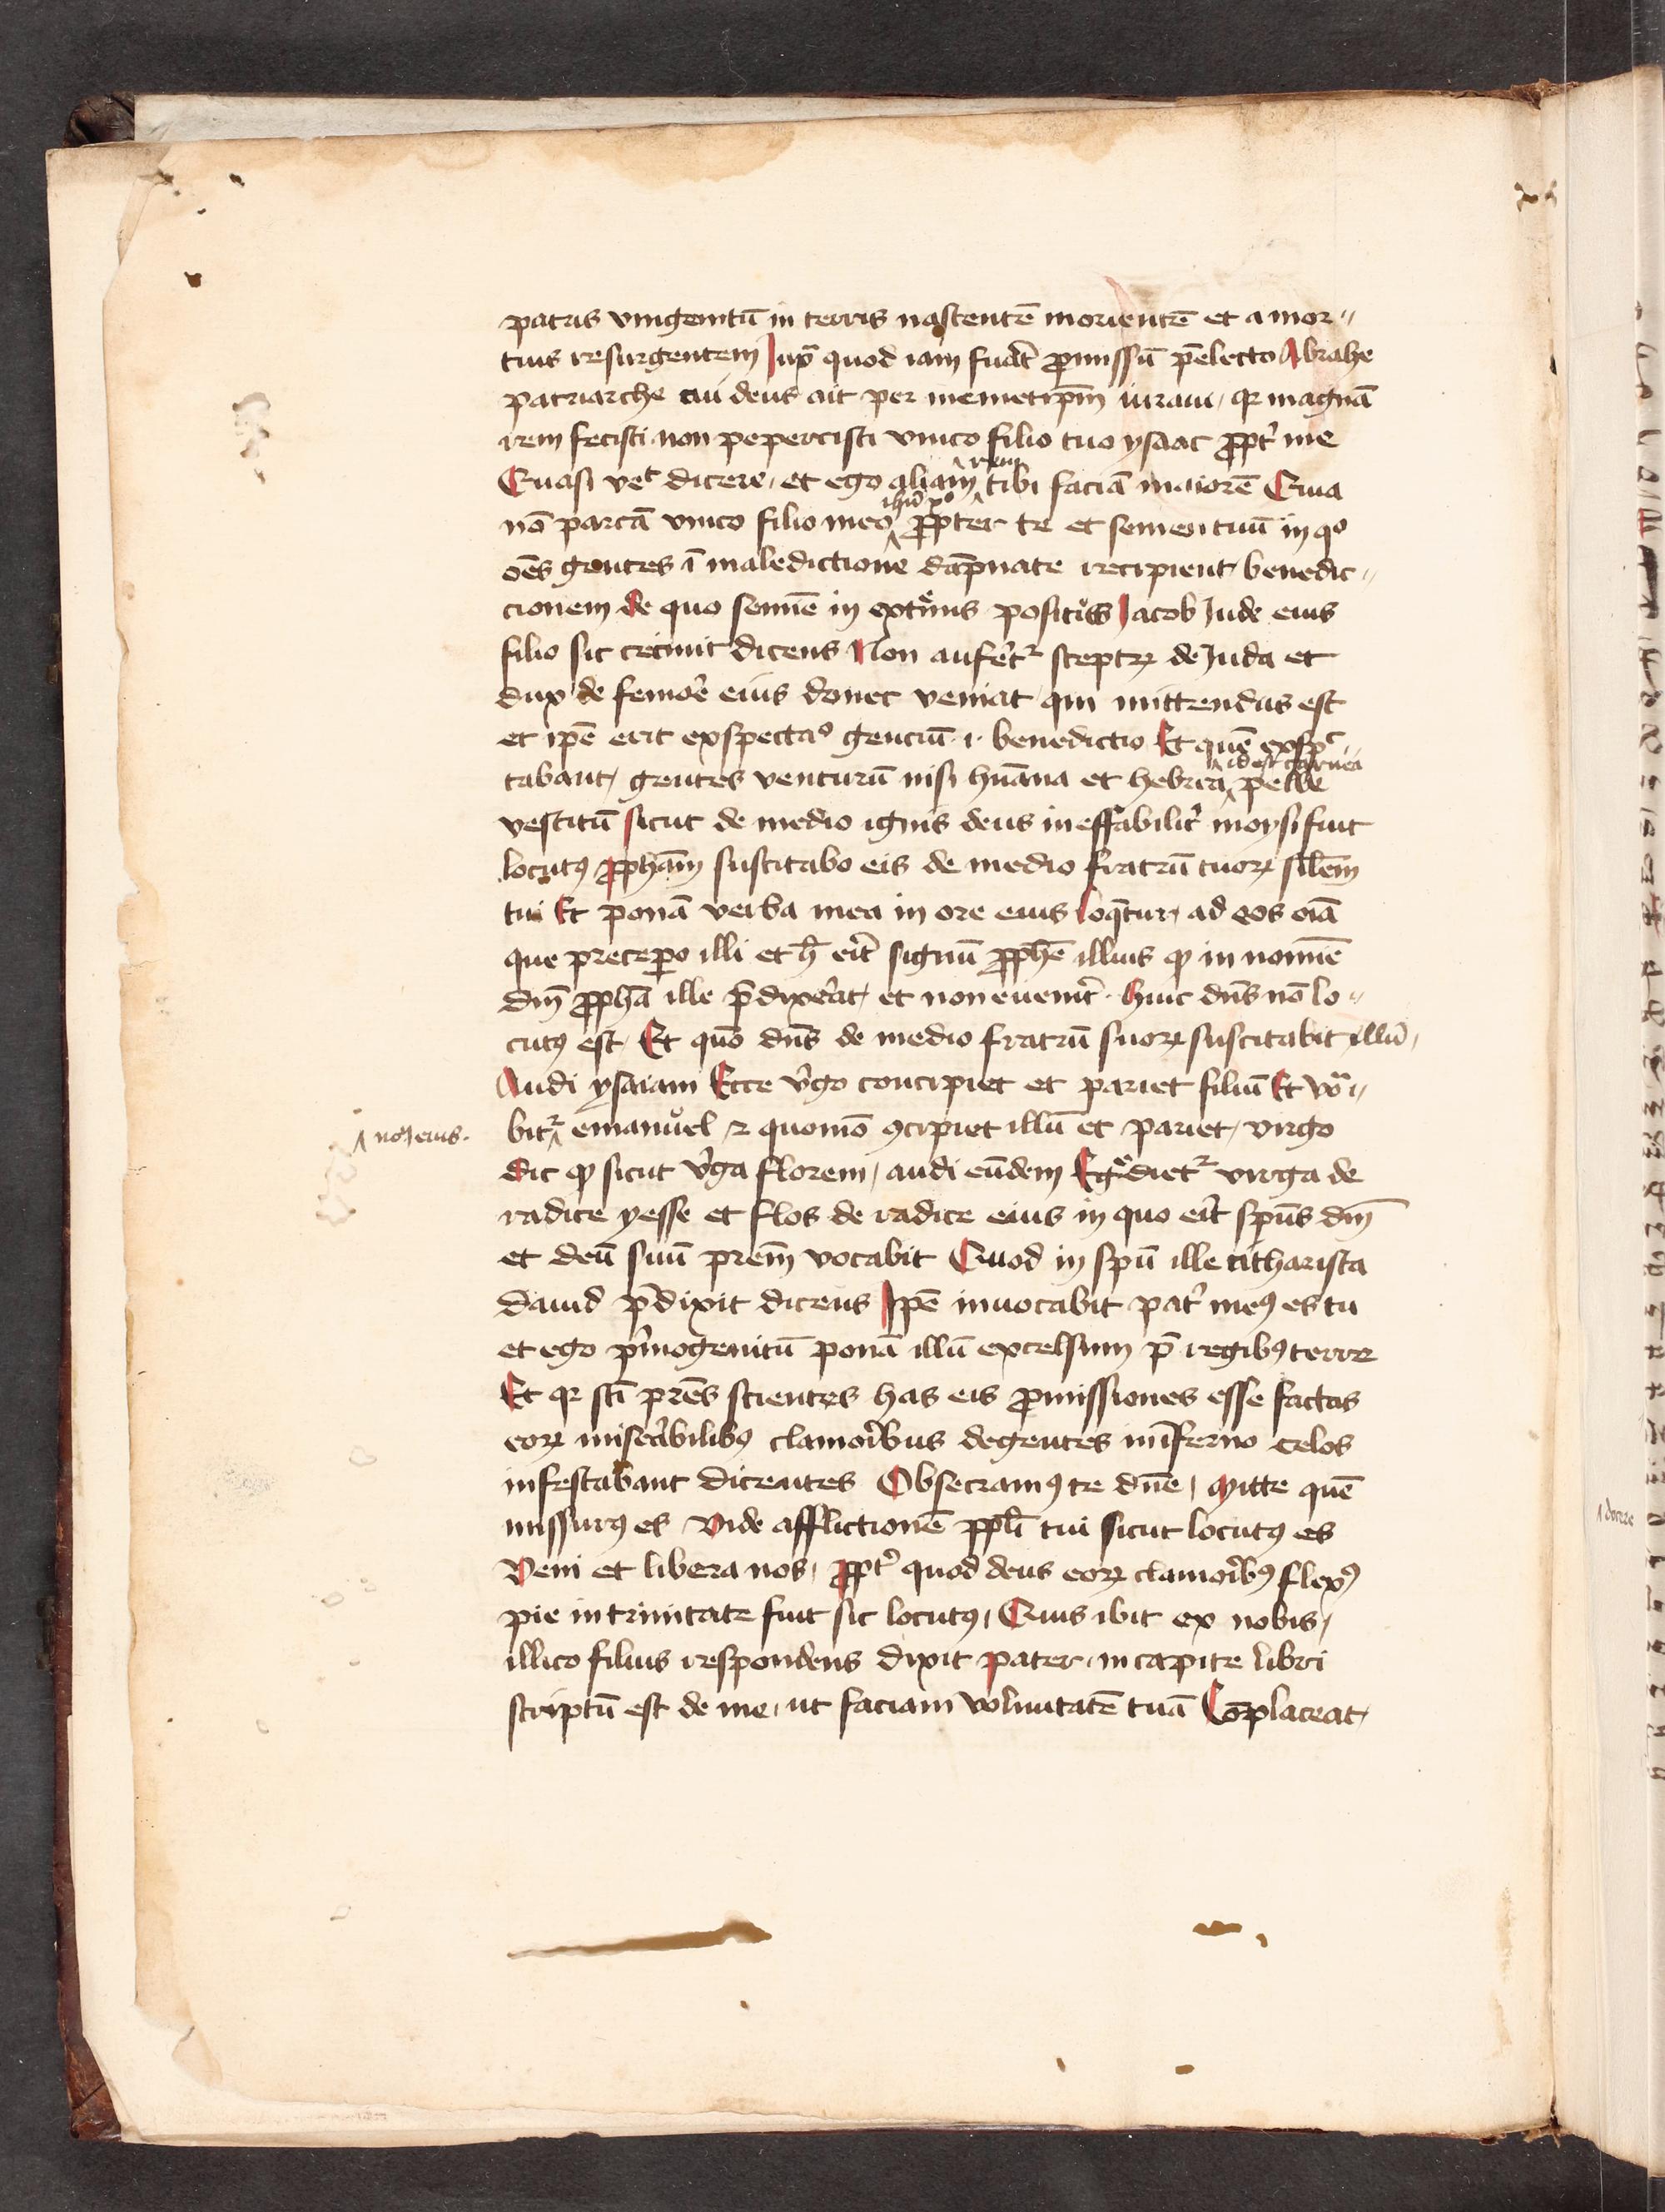 patris vnigenitū in terris nascentē morientē et a mor〃
tuis resurgentem Iuxͣ quod iam fuāt ꝓmissū p̄electo Abrahe
patriarche cui deus ait per memetip̄m iuraui / qꝛ magnā
rem fecisti non pepercisti vnico filio tuo ysaac ꝓpt̾ me
Quasi veꝉ dicere / et ego aliam ^rem^ tibi faciā maiorē Quia
nō parcā vnico filio meo ^ihū xº^ ꝓpter te et semen tuū in qͦ
oēs gentes ī maledictione dāpnate recipient benedic〃
cionem de quo semīe in ext̾mis positus Iacob Iude eius
filio sic cecinit dicens Non aufer̄tᷣ sceptꝝ de Iuda et
dux de femoꝛ̄e eius donec veniat qui mittendus est
et ip̄e erit expectaº genciū ·i· benedictio Et quē expec〃
tabant / gentes venturū nisi hūana et hebrea ^id est carnea^ pelle
vestitū sicut de medio ignis deus ineffabilit̾ moysi fuit
locutꝰ ꝓph̄am suscitabo eis de medio fratrū tuoꝝ sil̄em
tui Et ponā verba mea in ore eius loq̄tur ad eos oīa
que precepero illi et h̄ erit̄ signū ꝓph̄e illius ꝙ in nomīe
dn̄i ꝓph̄a ille p̄dixer̄at / et non euenit̾ · huic dn̄s nō lo〃
cutꝰ est / Et quō dn̄s de medio fratrū suoꝝ suscitabit illū /
Audi ysaiam Ecce v̾go concipiet et pariet filiū Et voͣi〃
bitᷣ ^noī eius·^ emanuel ⁊ quomō ꝯcipiet illū et pariet / virgo
dic ꝙ sicut v̾ga florem / audi eūdem Egͤdietᷣ virga de
radice yesse et flos de radice eius in quo erit̄ spūs dn̄i
et deū suū prēm vocabit Quod in spū ille citharista
dauid p̄dixit dicens Ip̄e inuocabit pat̾ meꝰ es tu
et ego p̾mogenitū ponā illū excelsum p̄ regibꝰ terre
Et qꝛ sc̄i prēs scientes has eis ꝓmissiones esse factas
eoꝝ miser̄abilibꝰ clamor̄ibus degentes in īferno celos
infestabant dicentes Obsecramꝰ te dn̄e / Mitte quē
missurꝰ es Vide afflictionē ppl̄i tui sicut locutꝰ es
Veni et libera nos / ꝓpt̾ quod deus eoꝝ clamor̄ibꝰ flexꝰ
pie in trinitate fuit sic locutꝰ / Quis ibit ex nobis /
illico filius respondens dixit pater in capite libri
scriptū est de me / ut faciam voluntatē tuā Cōplaceat